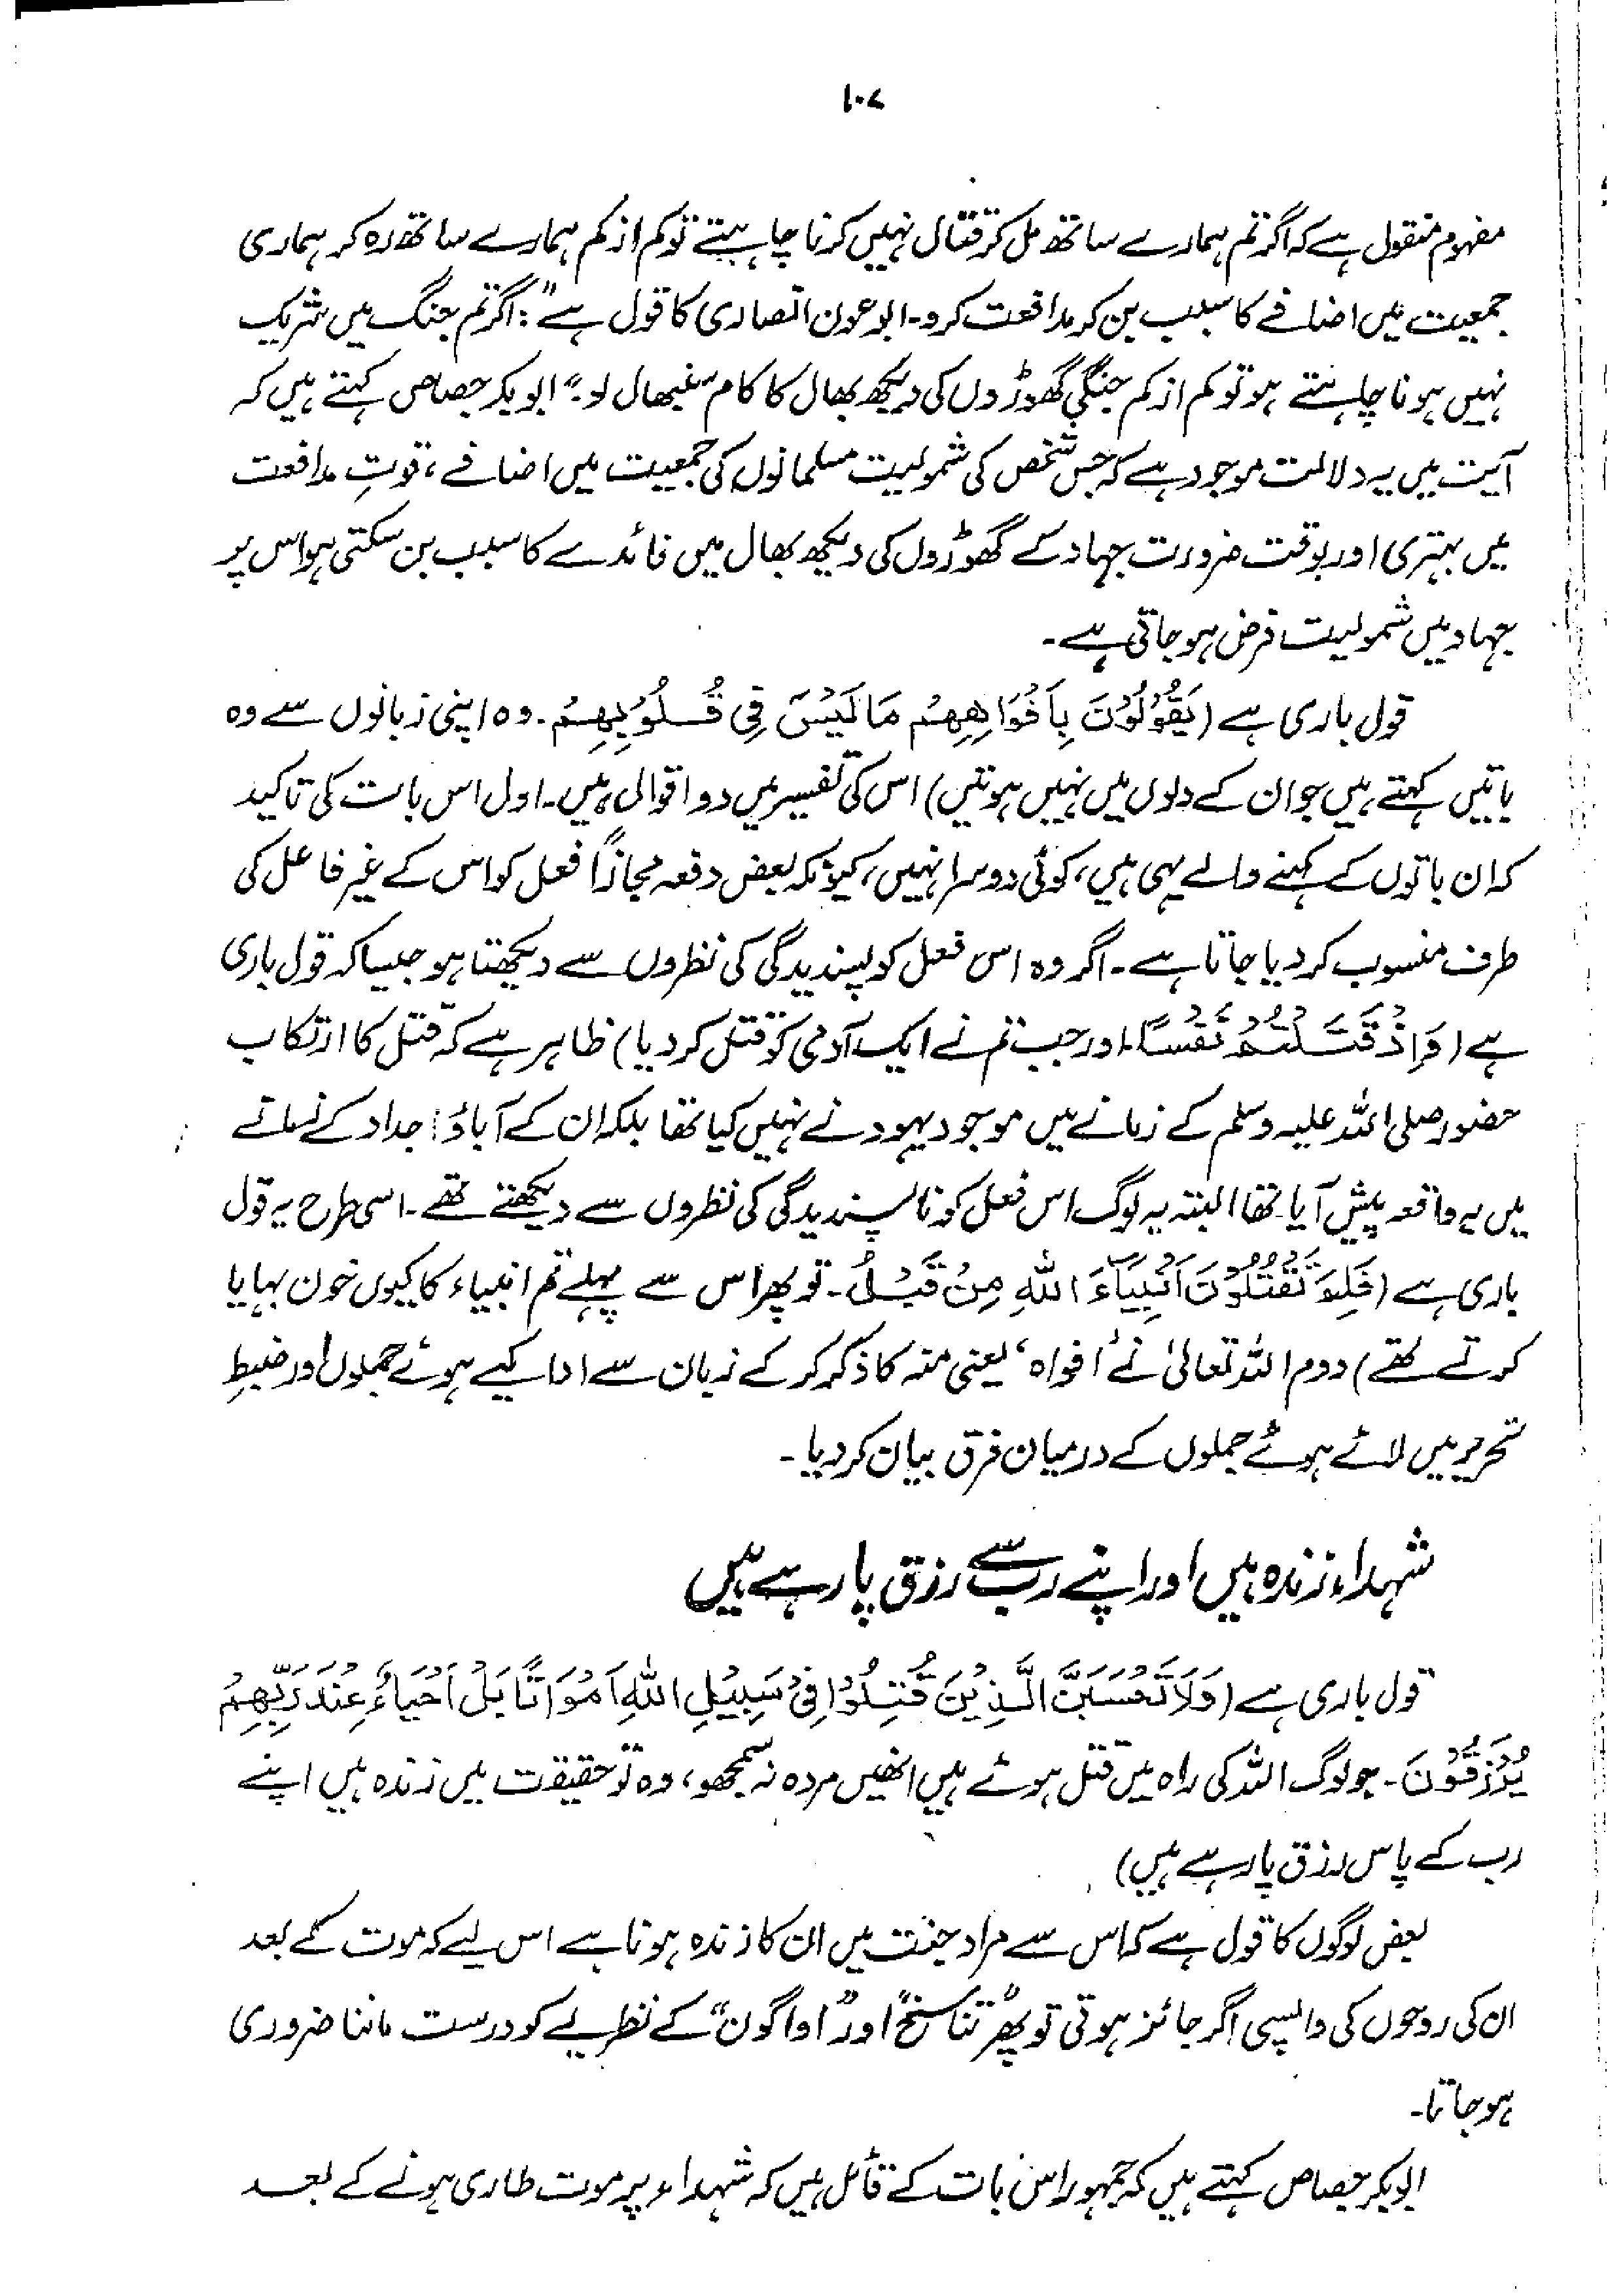 ۱۰۷
مفہوم منقول ہے کہ اگر تم ہمارے ساتھ مل کر قتال نہیں کرنا چاہتے تو کم از کم ہمارے ساتھ رہ کر ہماری
جمعیت میں اضافے کا سبب بن کر مدافعت کرو۔ ابو عون انصاری کا قول ہے": اگر تم جنگ میں شریک
نہیں ہونا چاہتے ہو تو کم از کم جنگی گھوڑوں کی دیکھ بھال کا کام سنبھال لو۔" ابوبکر جصاص کہتے ہیں کہ
آیت میں یہ دلالت موجود ہے کہ جس شخص کی شمولیت مسلمانوں کی جمعیت میں اضافے، قوتِ مدافعت
میں بہتری اور بوقت ضرورت جہاد کے گھوڑوں کی دیکھ بھال میں فائدے کا سبب بن سکتی ہو اس پر
جہاد میں شمولیت فرض ہو جاتی ہے۔
قول باری ہے (یَقُوْلُوْنَ بِاَفْوَاهِهِمْ مَا لَیْسَ فِی قُلُوْبِهِمْ۔ وہ اپنی زبانوں سے وہ
باتیں کہتے ہیں جو ان کے دلوں میں نہیں ہوتیں) اس کی تفسیر میں دو اقوال ہیں۔ اول اس بات کی تاکید
کہ ان باتوں کے کہنے والے یہی ہیں، کوئی دوسرا نہیں، کیونکہ بعض دفعہ مجازاً فعل کو اس کے غیر فاعل کی
طرف منسوب کر دیا جاتا ہے۔ اگر وہ اس فعل کو پسندیدگی کی نظروں سے دیکھتا ہو جیسا کہ قول باری
ہے (وَاِذْ قَتَلْتُمْ نَفْسًا۔ اور جب تم نے ایک آدمی کو قتل کر دیا) ظاہر ہے کہ قتل کا ارتکاب
حضور صلی اللہ علیہ وسلم کے زمانے میں موجود یہود نے نہیں کیا تھا بلکہ ان کے آباؤ اجداد کے زمانے
میں یہ واقعہ پیش آیا تھا البتہ یہ لوگ اس فعل کو ناپسندیدگی کی نظروں سے دیکھتے تھے۔ اسی طرح یہ قول
باری ہے (فَلِمَ تَقْتُلُوْنَ اَنْبِیَآءَ اللّٰهِ مِنْ قَبْلُ۔ تو پھر اس سے پہلے تم انبیاء کا کیوں خون بہایا
کرتے تھے) دوم اللہ تعالیٰ نے 'افواہ' یعنی منہ کا ذکر کر کے زبان سے ادا کیے ہوئے جملوں اور ضبطِ
تحریر میں لائے ہوئے جملوں کے درمیان فرق بیان کر دیا۔
شہداء زندہ ہیں اور اپنے رب سے رزق پا رہے ہیں
قول باری ہے (وَلَا تَحْسَبَنَّ الَّذِیْنَ قُتِلُوْا فِیْ سَبِیْلِ اللّٰهِ اَمْوَاتًا بَلْ اَحْیَاءٌ عِنْدَ رَبِّهِمْ
یُرْزَقُوْنَ۔ جو لوگ اللہ کی راہ میں قتل ہوئے ہیں انھیں مردہ نہ سمجھو، وہ تو حقیقت میں زندہ ہیں اپنے
رب کے پاس رزق پا رہے ہیں)
بعض لوگوں کا قول ہے کہ اس سے مراد جنت میں ان کا زندہ ہونا ہے اس لیے کہ موت کے بعد
ان کی روحوں کی واپسی اگر جائز ہوتی تو پھر "تناسخ" اور "اواگون" کے نظریے کو درست ماننا ضروری
ہو جاتا۔
ابوبکر جصاص کہتے ہیں کہ جمہور اس بات کے قائل ہیں کہ شہداء پر موت طاری ہونے کے بعد